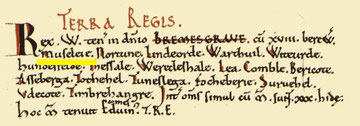 TERRA REGIS.
Rex .W. ten in dnio BREMESGRAVE. cū xviii. berew.
Museleie. Nortune. Lindeorde. Warthuil. Witeurde.
Hundesfelde. Tessale. Weredeshale. Lea. Comble. Bericote.
Asseberga. Tothehel. Tuneslega. Focheberie. Suruehel.
Udecote. Timbrehangre. Int om̄s simul cū m̄. suɴ̄. xxx. hide.
hoc m̄ tenuit Eduin. T.R.E.